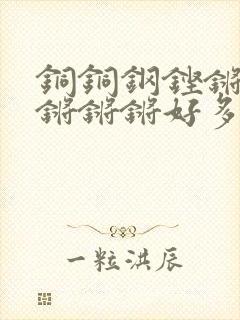 銅銅鋼鏗鏘
鏘鏘鏘好多
一粒洪辰